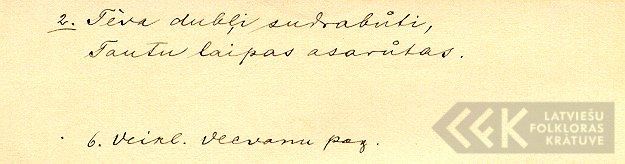 2. Tēva dubļi sudrabůti,
Tautu laipas asarůtas.
6. Veikl. Vecvanu pag.
LATVIEŠU
FOLKLORAS
KRĀTUVE